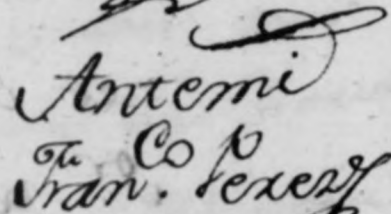 Antemi
Co
Fran.co Perez